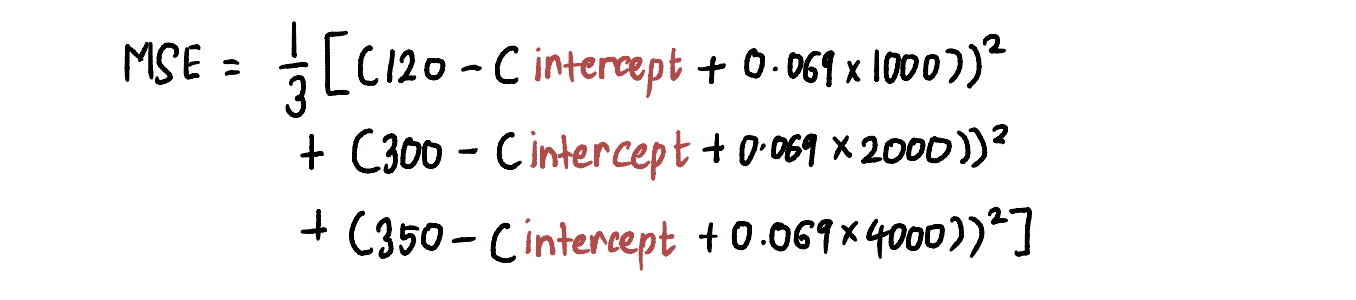 MSE = 1/3 [(120 - (intercept + 0.069 x 1000))²
+ (300 - (intercept + 0.069 x 2000))²
+ (350 - (intercept + 0.069 x 4000))²]